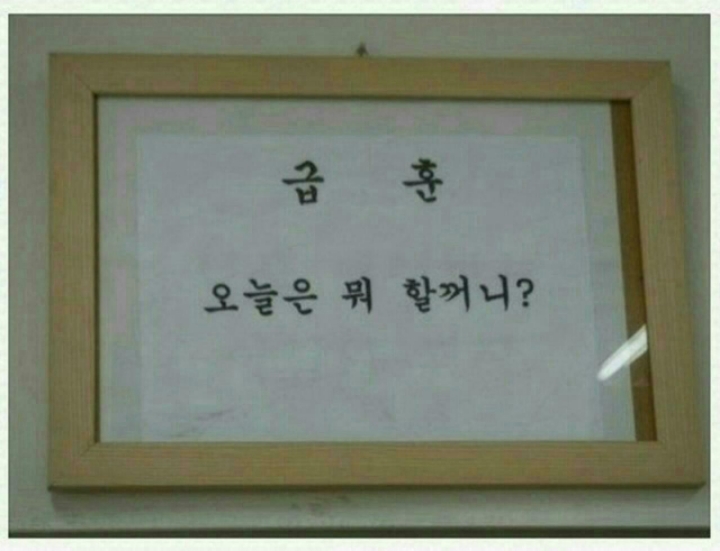 급 훈
오늘은 뭐 할꺼니?